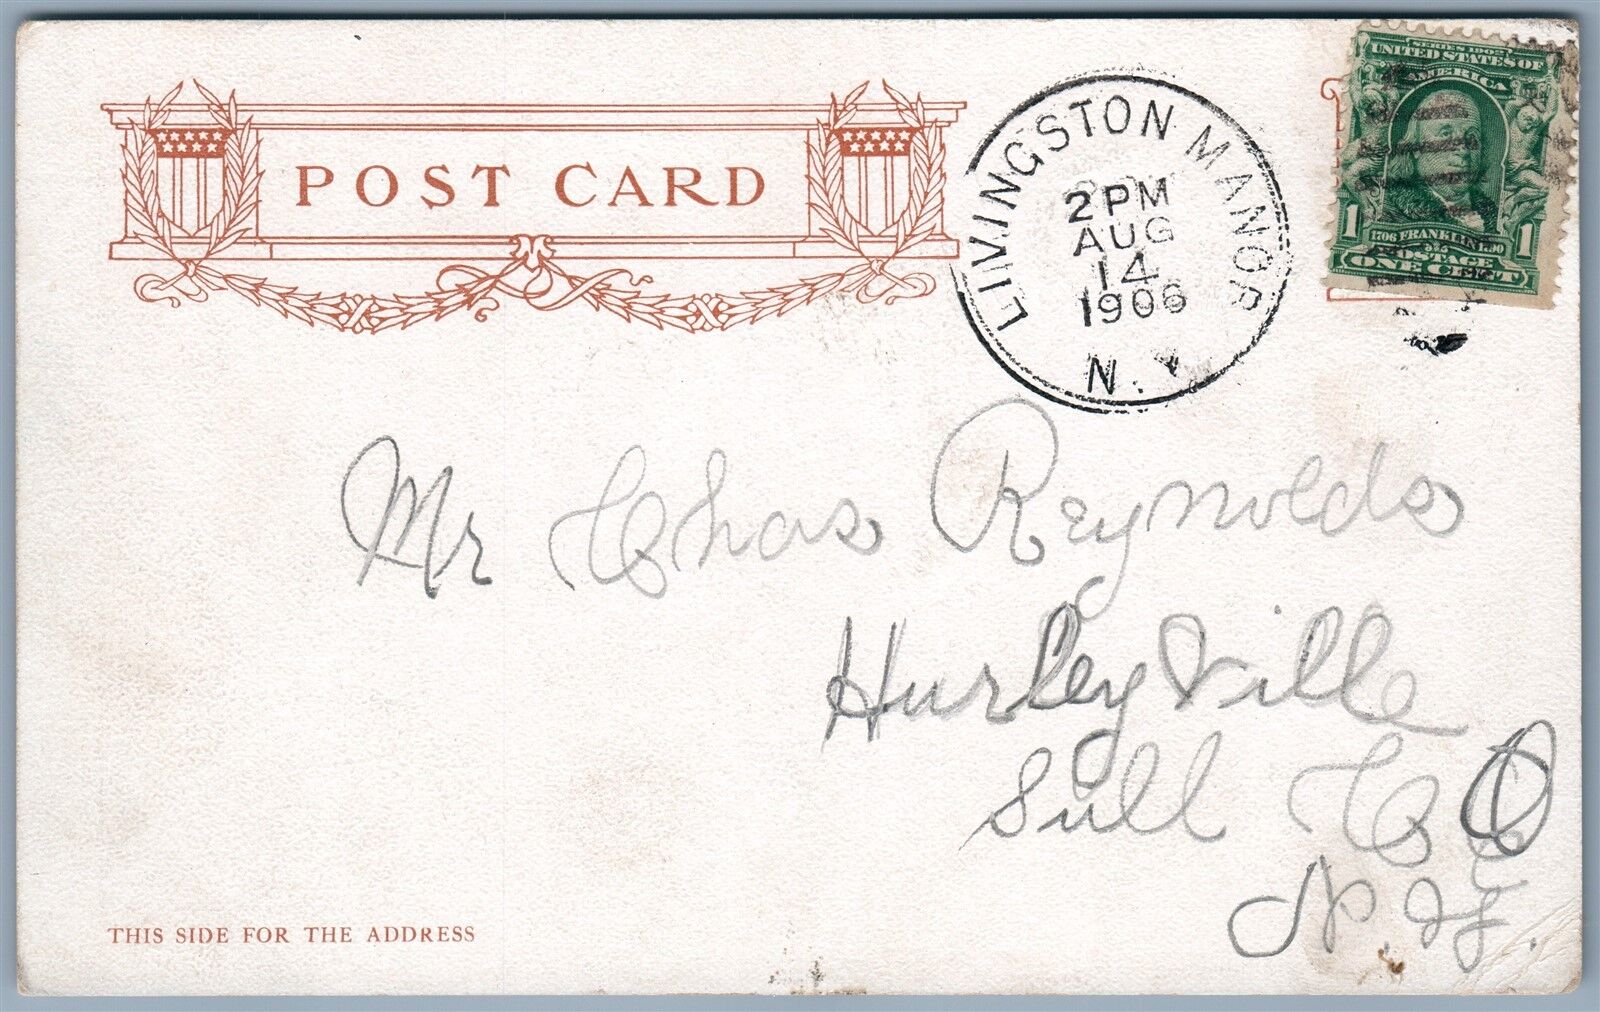 POST CARD
LIVINGSTON MANOR
2 PM
AUG
14
1906
N.Y
SERIES 1902
UNITED STATES OF
AMERICA
1 1706 FRANKLIN 1790 1
POSTAGE
ONE CENT
Mr Chas Reynolds
Hurleyville
Sull CO
N.Y.
THIS SIDE FOR THE ADDRESS